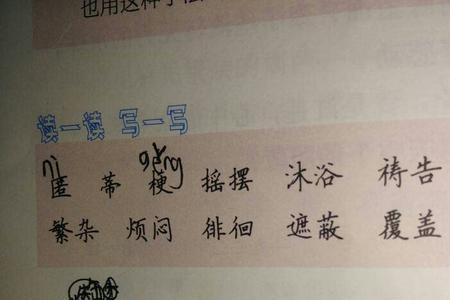 也用这种手法
读一读 写一写
nì gěng
匿 蒂 梗 摇摆 沐浴 祷告
繁杂 烦闷 徘徊 遮蔽 覆盖